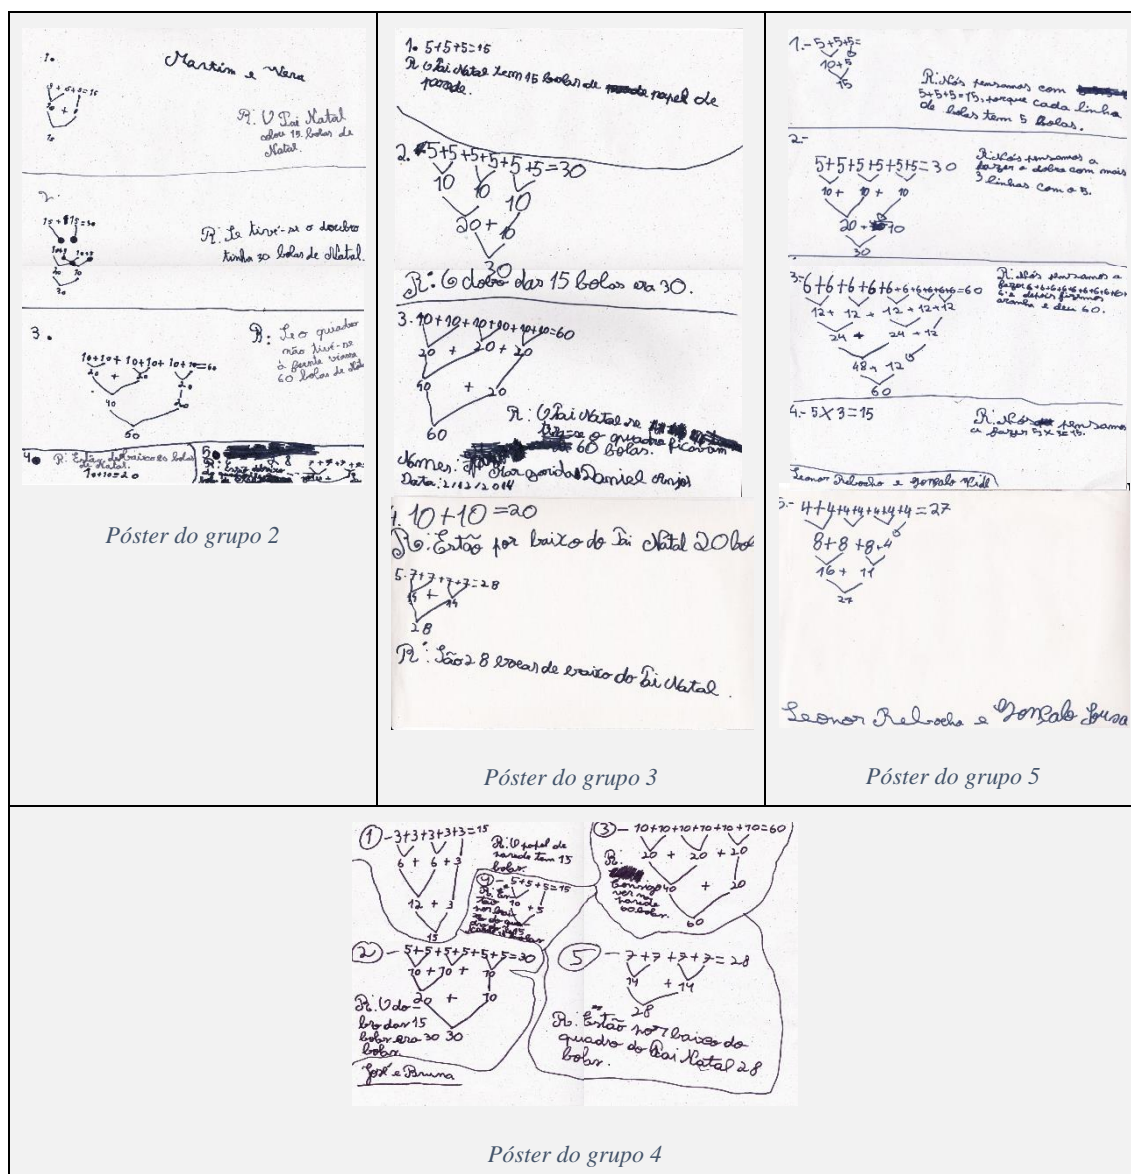 1.
Martim e Vera
5+5+5=15
10 + 5
R: O Pai Natal
15 bolas de
Natal.
2.
15+15=30
30
R: Se tivé-se o doubro
tinha 30 bolas de Natal.
3.
10+10+10+10+10+10=60
20 + 20
40
60
R: Se o quadro
não tivé-se
à frente
60 bolas de
4.
R: Estão debaixo
de Natal.
10+10=20
5.
Póster do grupo 2
1. 5+5+5=15
R O Pai Natal tem 15 bolas de papel de
parede.
2. 5+5+5+5+5+5=30
10 10 10
20 + 10
30
R: O dobo das 15 bolas era 30.
3. 10+10+10+10+10+10=60
20 + 20 + 20
40 + 20
60
R: O Pai Natal se
o quadro ficavam
60 bolas.
Nomes: Margarida Daniel Anjos
Data: 2/12/2014
4. 10+10=20
R: Estão por baixo do Pai Natal 20
5. 7+7+7+7=28
+ 14
28
R: São 28 de baixo do Pai Natal.
Póster do grupo 3
1.- 5+5+5=
10+5
15
R: Nós pensamos com
5+5+5=15, porque cada linha
de bolas tem 5 bolas.
2.-
5+5+5+5+5+5=30
10+ 10 + 10
20 + 10
30
R: Nós pensamos a
fazer o dobro com mais
3 linhas com o 5.
3=6+6+6+6+6+6+6+6+6+6=60
12+ 12 + 12+12+12
24 + 24 + 12
48+ 12
60
R: Nós pensamos a
fazer 6+6+6+6+6+6+6+6+6+
6 e depois fizemos
aranha e deu 60.
4.- 5X3=15
R: Nós pensamos
a fazer 5x3=15.
Leonor Rebocho e Gonçalo
5.- 4+4+4+4+4+4+4=27
8+8+8+4
16+ 11
27
Leonor Rebocho e Gonçalo Sousa
Póster do grupo 5
1 -3+3+3+3+3=15
6 + 6 + 3
12 + 3
15
R: O papel de
parede tem 15
bolas.
4 - 5+5+5=15
10 + 5
3 - 10+10+10+10+10+10=60
20 + 20 + 20
40 + 20
60
R:
Consigo
ver na
parede
60 bolas.
2 - 5+5+5+5+5+5=30
10+10+ 10
20 + 10
30
R: O do-
bro das 15
bolas era 30
bolas.
José e Bruna
5 - 7+7+7+7=28
14 +14
28
R: Estão por baixo do
quadro do Pai Natal 28
bolas.
Póster do grupo 4